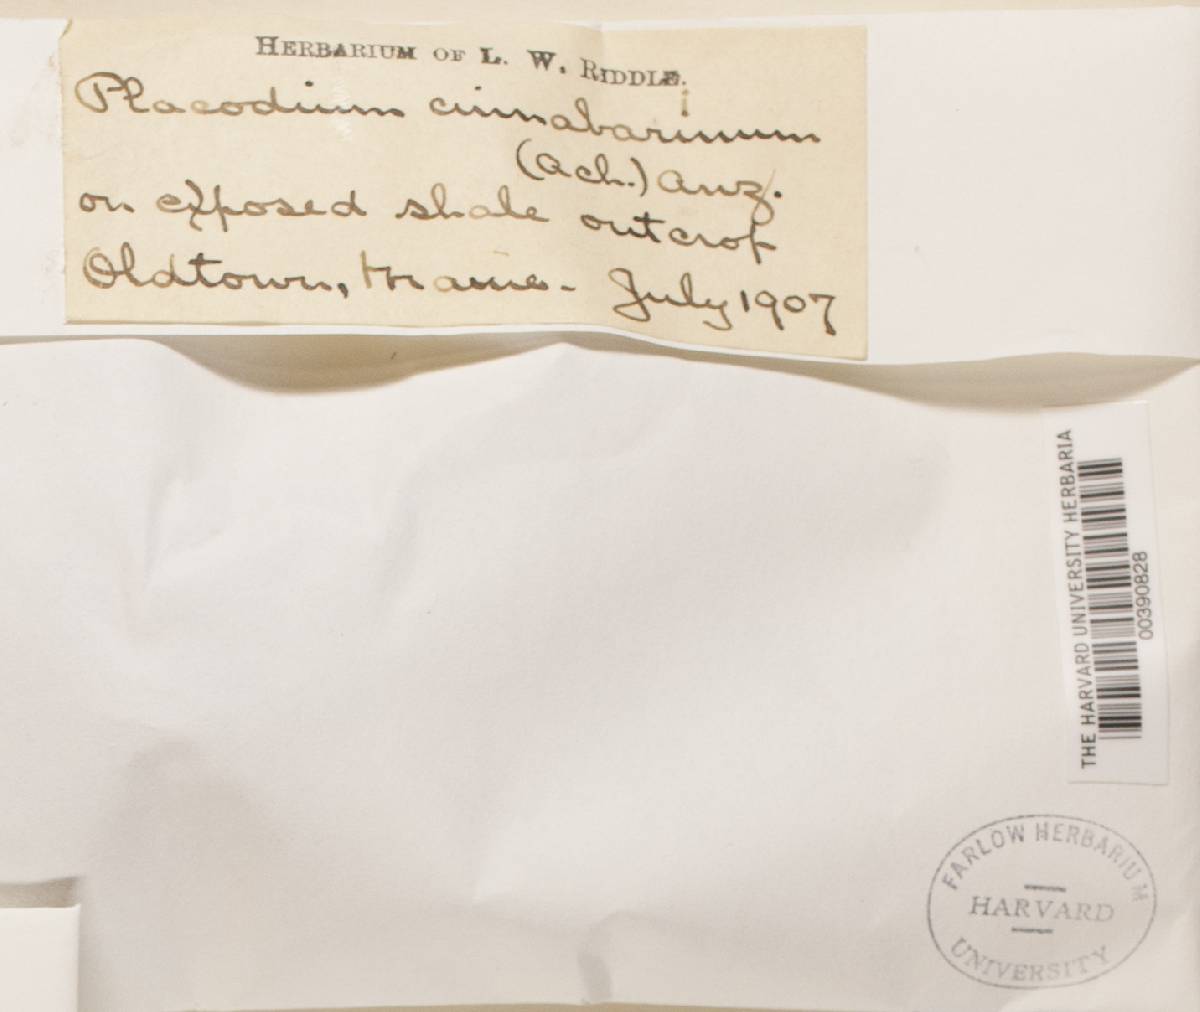 HERBARIUM OF L. W. RIDDLE.
Placodium cinnabarinum
(Ach.) Anz.
on exposed shale outcrop
Oldtown, Maine - July 1907
THE HARVARD UNIVERSITY HERBARIA
00390828
FARLOW HERBARIUM
HARVARD
UNIVERSITY